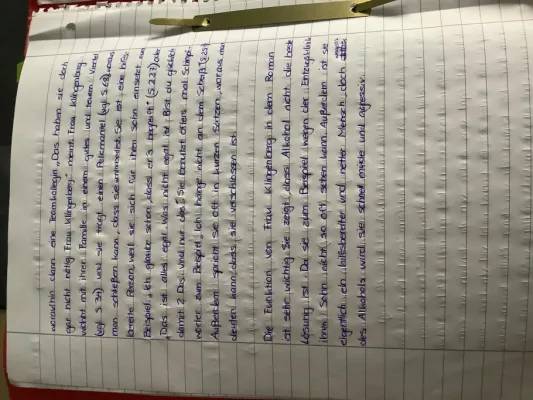 woraufhin dann eine Teamkollegin „Das haben sie doch
gar nicht nötig Frau Klingenberg" meint. Frau Klingenberg
wohnt mit ihrer Familie in einem guten und teuren Viertel
(vgl. S. 34) und sie trägt einen Pelzmantel (vgl. S. 68), woraus
man schließen kann, dass sie wohlhabend ist. Sie ist eine
weil sie sich für ihren Sohn einsetzt, zum
Beispiel „Ich glaube schon, dass er's begreift" (S.227) oder
„Das ist alles egal. Was nicht egal ist: Bist du glücklich
damit? Das. Und nur das." Sie benutzt öfters mal Schimpf-
wörter zum Beispiel „Ich hänge nicht an dem Scheiß"
Außerdem spricht sie oft in kurzen Sätzen, woraus man
deuten kann, dass sie verschlossen ist.
Die Funktion von Frau Klingenberg in dem Roman
ist sehr wichtig. Sie zeigt, dass Alkohol nicht die beste
Lösung ist. Da sie zum Beispiel wegen der Entzugsklinik
ihren Sohn nicht so oft sehen kann. Außerdem ist sie
eigentlich ein hilfsbereiter und netter Mensch, doch wegen
des Alkohols wird sie schnell und agressiv.